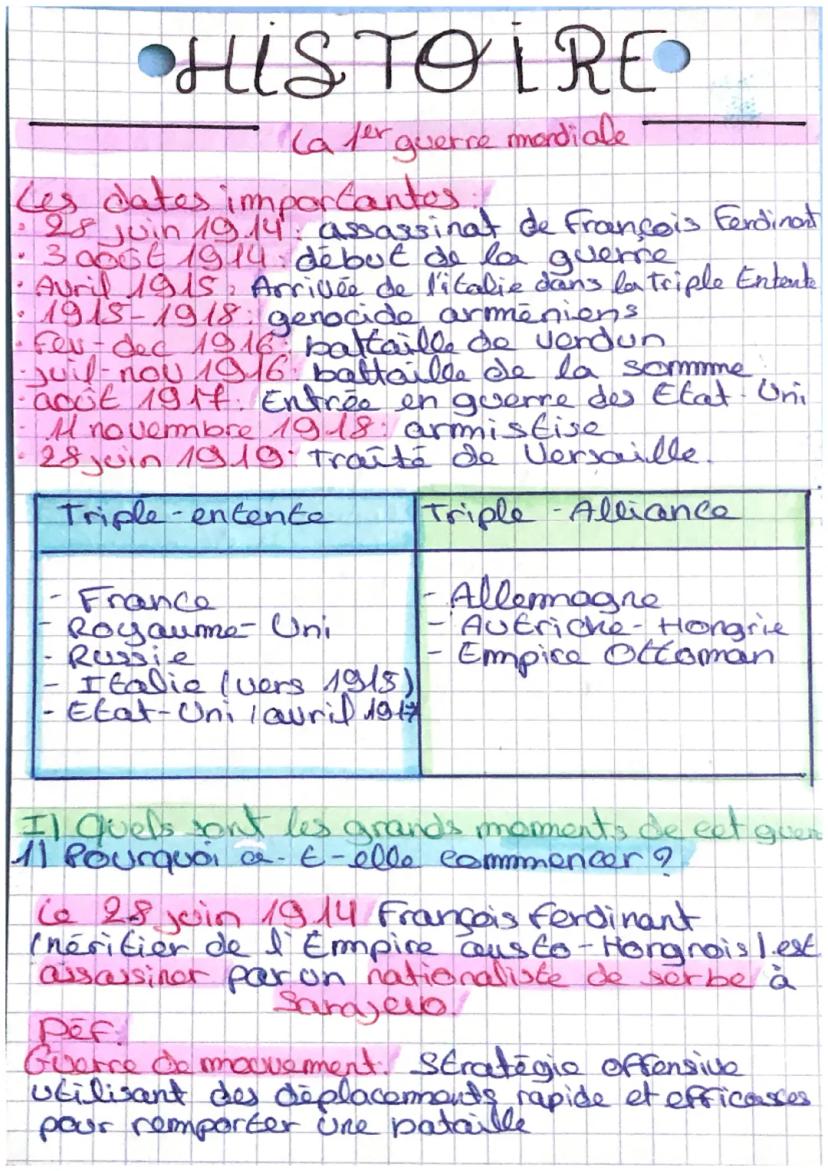 HISTOIRE
La 1er guerre mondiale
Les dates importantes:
· 28 juin 1914: assassinat de François Ferdinant
· 3 août 1914: début de la guerre
· Avril 1915: Arrivée de l'italie dans la Triple Entente
· 1915-1918: genocide arméniens
· Fev-dec 1916: battaille de verdun
· juil-nov 1916: battaille de la sommme
· août 1917: Entrée en guerre des Etat-Uni
· 11 novembre 1918: armistise
· 28 juin 1919: Traité de Versaille.
Triple-entente
Triple-Alliance
- France
- Royaume-Uni
- Russie
- Italie (vers 1915)
- Etat-Uni (avril 1917
- Allemagne
- Autriche-Hongrie
- Empire Ottoman
I) Quels sont les grands moments de cet guerr
1) Pourquoi a-t-elle commmencer?
Le 28 juin 1914 François Ferdinant
(héritier de l'Empire austo-Hongrois) est
assassiner par un nationaliste de serbe à
Sarajevo.
DÉF.
Guerre de mouvement: Stratégie offensive
utilisant des déplacements rapide et efficases
pour remporter une bataille